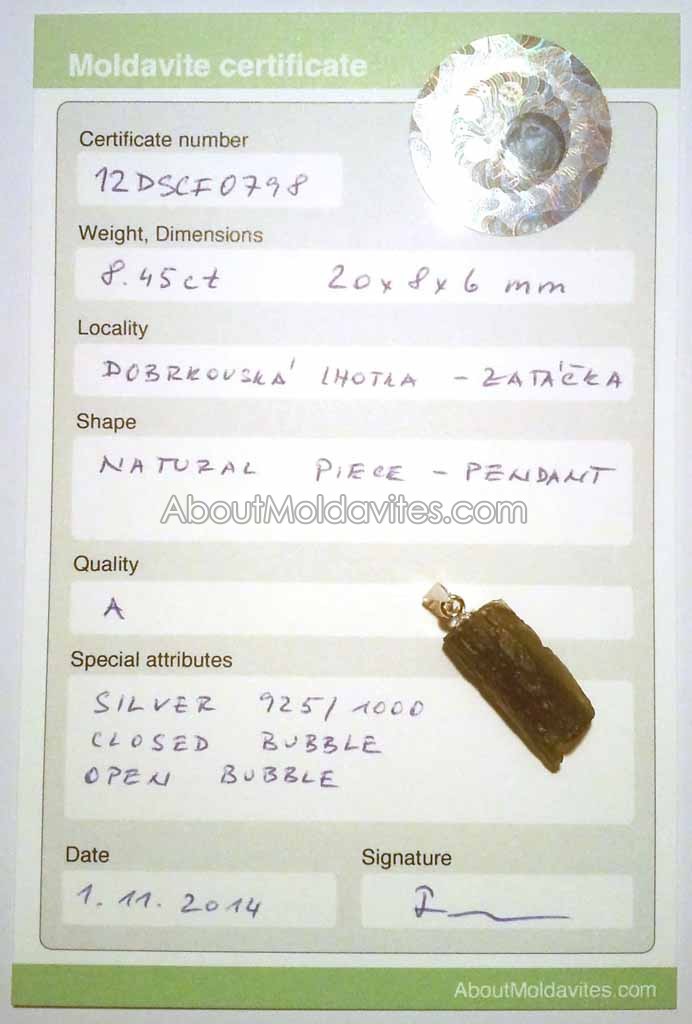 Moldavite certificate
Certificate number
12DSCF0798
Weight, Dimensions
8.45ct 20x8x6 mm
Locality
DOBRKOVSKÁ LHOTKA - ZATÁČKA
Shape
NATURAL PIECE - PENDANT
AboutMoldavites.com
Quality
A
Special attributes
SILVER 925/1000
CLOSED BUBBLE
OPEN BUBBLE
Date
Signature
1. 11. 2014
AboutMoldavites.com